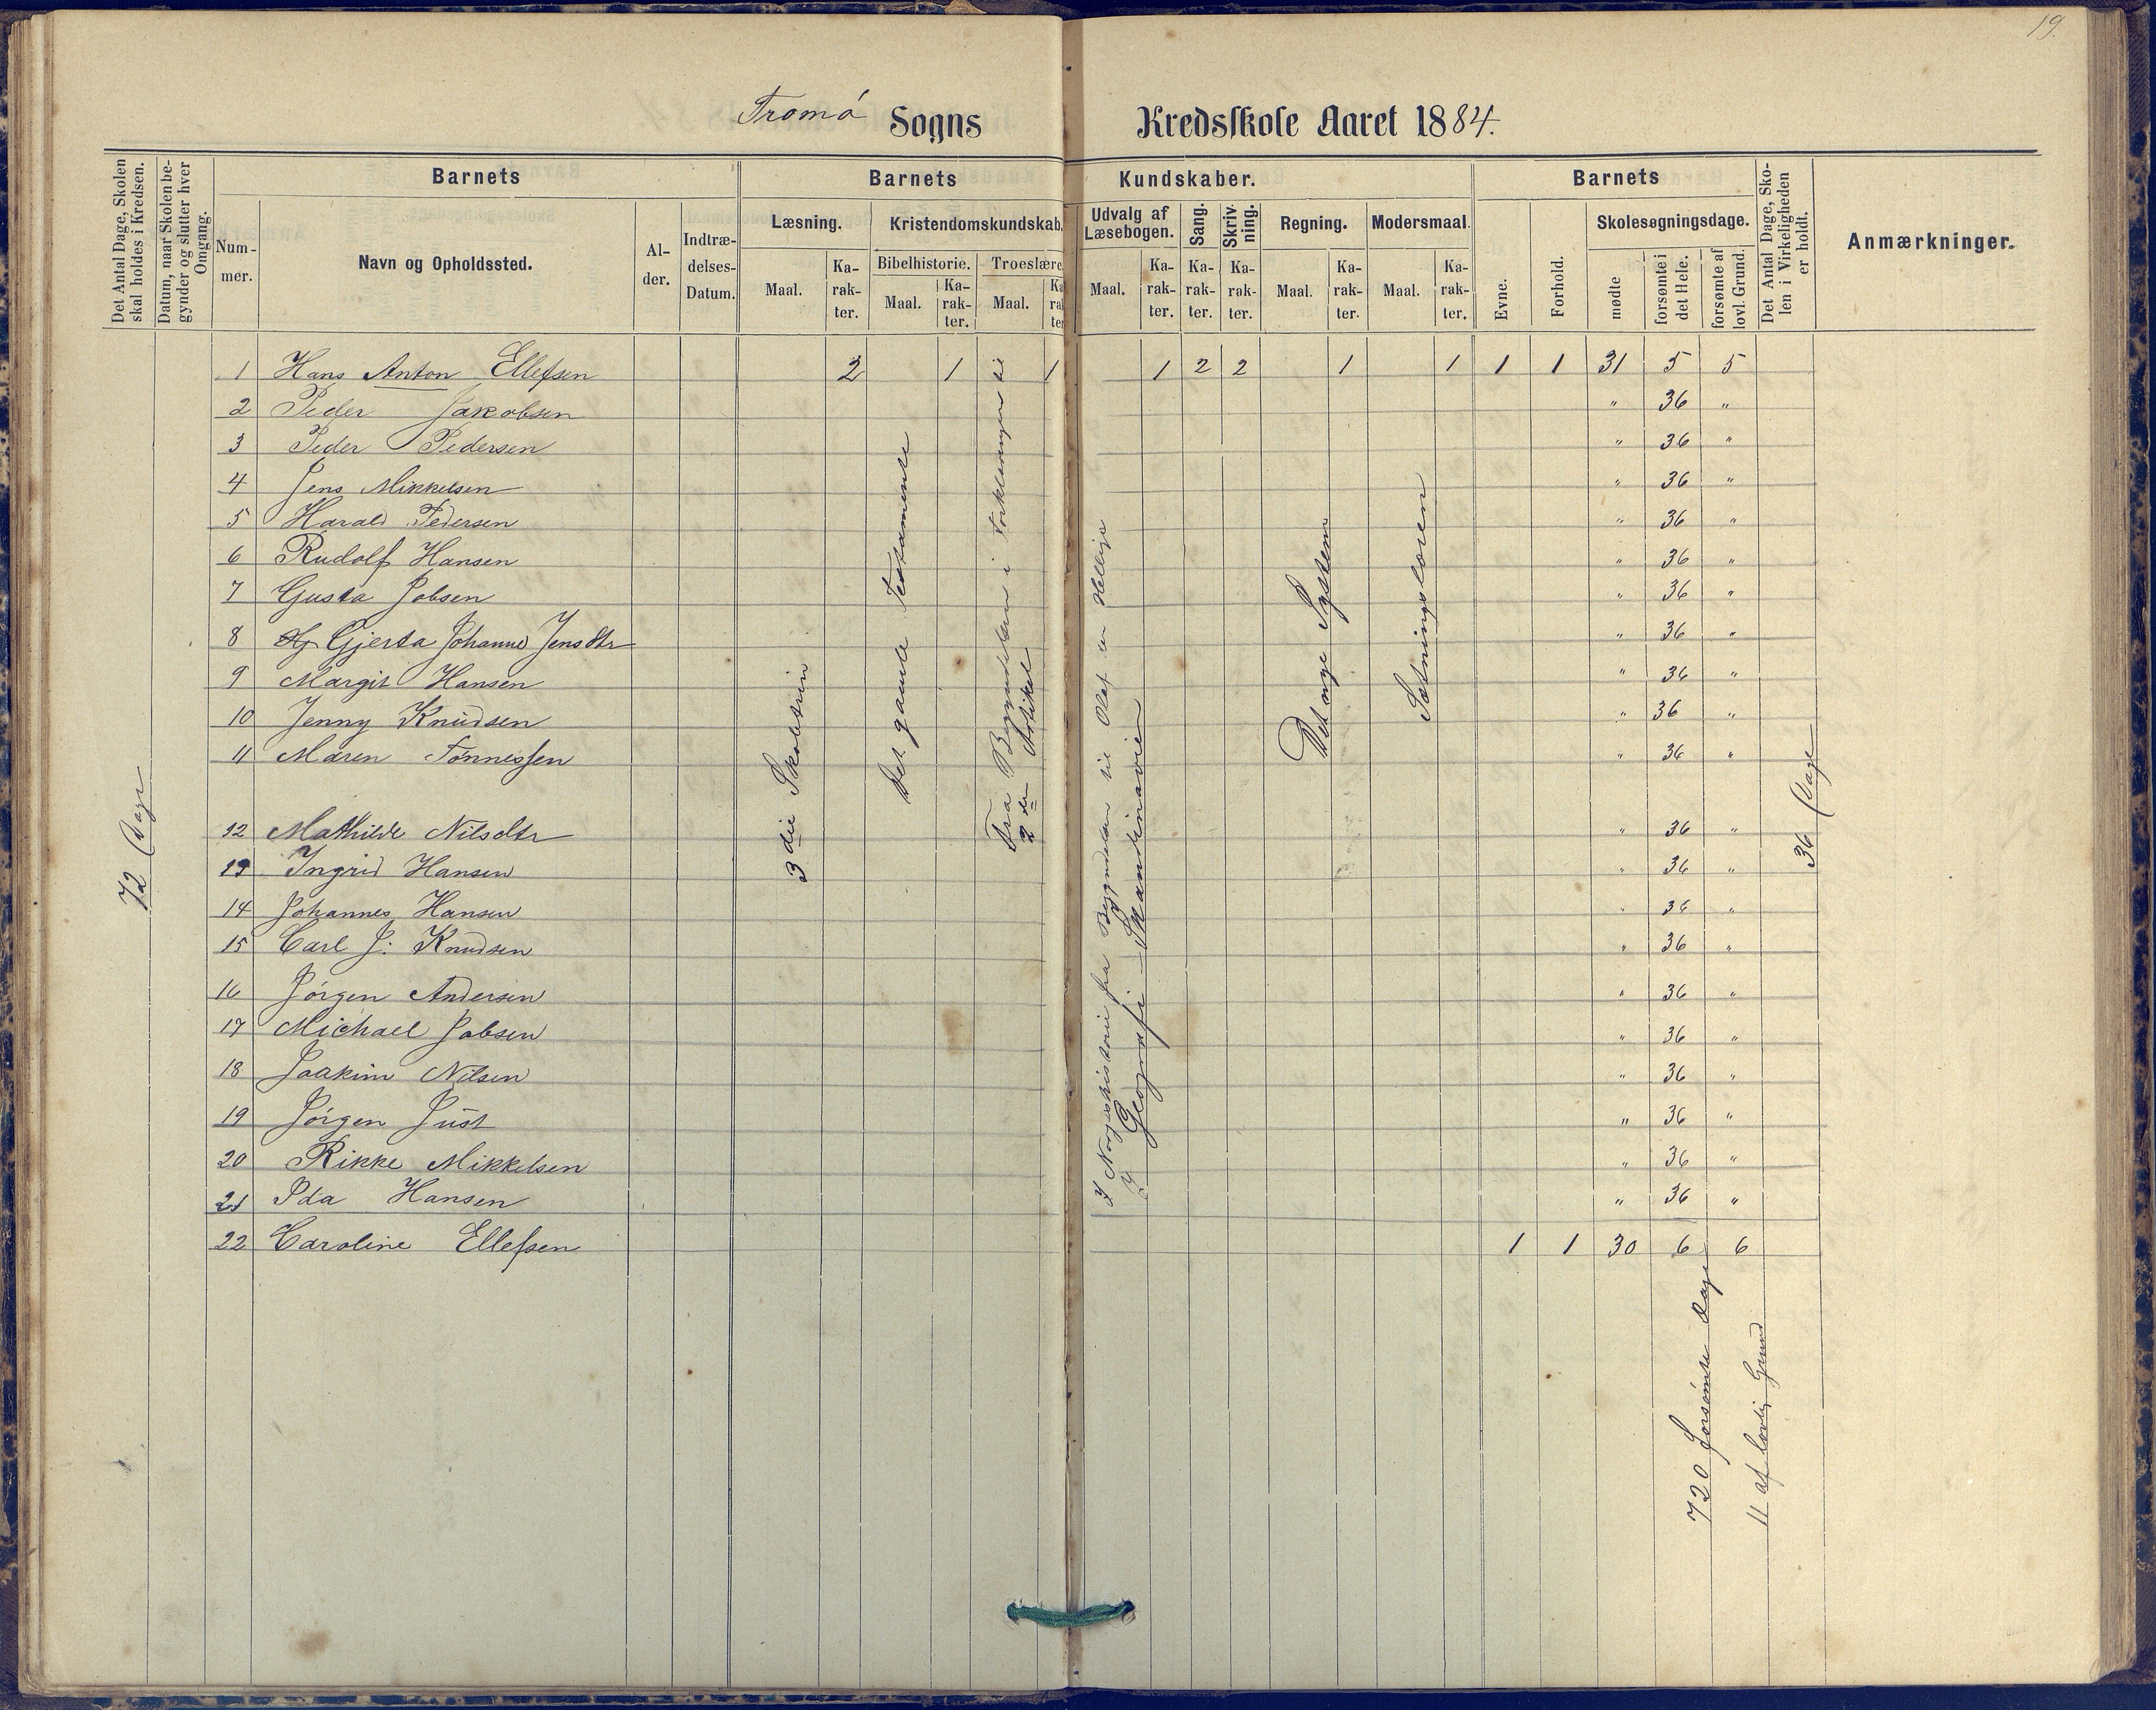 19.
Tromö Sogns Kredsskole Aaret 1884.
Det Antal Dage, Skolen skal holdes i Kredsen.
Datum, naar Skolen begynder og slutter hver Omgang.
Barnets
Nummer.
Navn og Opholdssted.
Alder.
Indtrædelses-Datum.
Barnets Kundskaber.
Læsning.
Maal.
Karakter.
Kristendomskundskab.
Bibelhistorie.
Maal.
Karakter.
Troeslære.
Maal.
Karakter.
Udvalg af Læsebogen.
Maal.
Karakter.
Sang.
Karakter.
Skrivning.
Karakter.
Regning.
Maal.
Karakter.
Modersmaal.
Maal.
Karakter.
Barnets
Evne.
Forhold.
Skolesøgningsdage.
mødte
forsømte i det Hele.
forsømte af lovl. Grund.
Det Antal Dage, Skolen i Virkeligheden er holdt.
Anmærkninger.
1 Hans Anton Ellefsen 2 1 1 1 2 2 1 1 1 1 31 5 5
2 Peder Jakobsen " 36 "
3 Peder Pedersen " 36 "
4 Jens Mikkelsen " 36 "
5 Harald Pedersen " 36 "
6 Rudolf Hansen " 36 "
7 Gusta Jobsen " 36 "
8 Gjerta Johanne Jensdtr " 36 "
9 Margit Hansen " 36 "
10 Jenny Knudsen " 36 "
11 Maren Tönnessen " 36 "
12 Mathilde Nilsdtr " 36 "
13 Ingrid Hansen " 36 "
14 Johannes Hansen " 36 "
15 Carl J. Knudsen " 36 "
16 Jörgen Andersen " 36 "
17 Michael Jobsen " 36 "
18 Joakim Nilsen " 36 "
19 Jörgen Just " 36 "
20 Rikke Mikkelsen " 36 "
21 Ida Hansen " 36 "
22 Caroline Ellefsen 1 1 30 6 6
72 Dage
3die Skoletrin
Det gamle Testamente
Fra Begyndelsen i Forklaringen til
2den Artikel
I Norgeshistorie fra Begyndelsen til Olaf en Hellige
I Geografi Skandinavien
Det nye System
Sætningslæren
36 Dage
720 forsømte Dage
11 af lovlig Grund